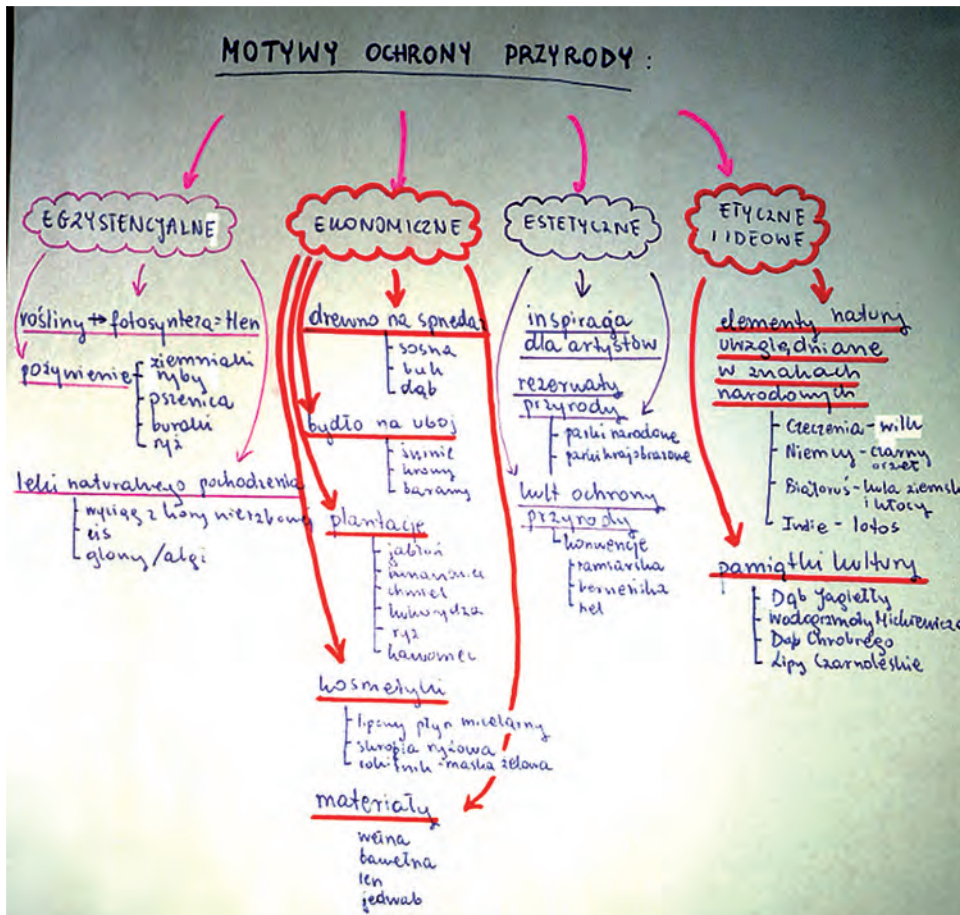 MOTYWY OCHRONY PRZYRODY:
EGZYSTENCJALNE
rośliny → fotosynteza = tlen
pożywienie
ziemniaki
ryby
pszenica
buraki
ryż
leki naturalnego pochodzenia
wyciąg z kory wierzbowej
cis
glony/algi
EKONOMICZNE
drewno na sprzedaż
sosna
buk
dąb
bydło na ubój
świnie
krowy
barany
plantacje
jabłoń
chmiel
kukurydza
ryż
kawowiec
kosmetyki
lipowy płyn micelarny
skrobia ryżowa
rokitnik - maska żelowa
materiały
wełna
bawełna
len
jedwab
ESTETYCZNE
inspiracja
dla artystów
rezerwaty
przyrody
parki narodowe
parki krajobrazowe
kult ochrony
przyrody
konwencje
ramsarska
berneńska
hel
ETYCZNE
I IDEOWE
elementy natury
uwzględniane
w znakach
narodowych
Czeczenia - wilk
Niemcy - czarny
orzeł
Białoruś - kula ziemska
i kłosy
Indie - lotos
pamiątki kultury
Dąb Jagiełły
Wodogrzmoty Mickiewicza
Dąb Chrobrego
Lipy Czarnoleskie